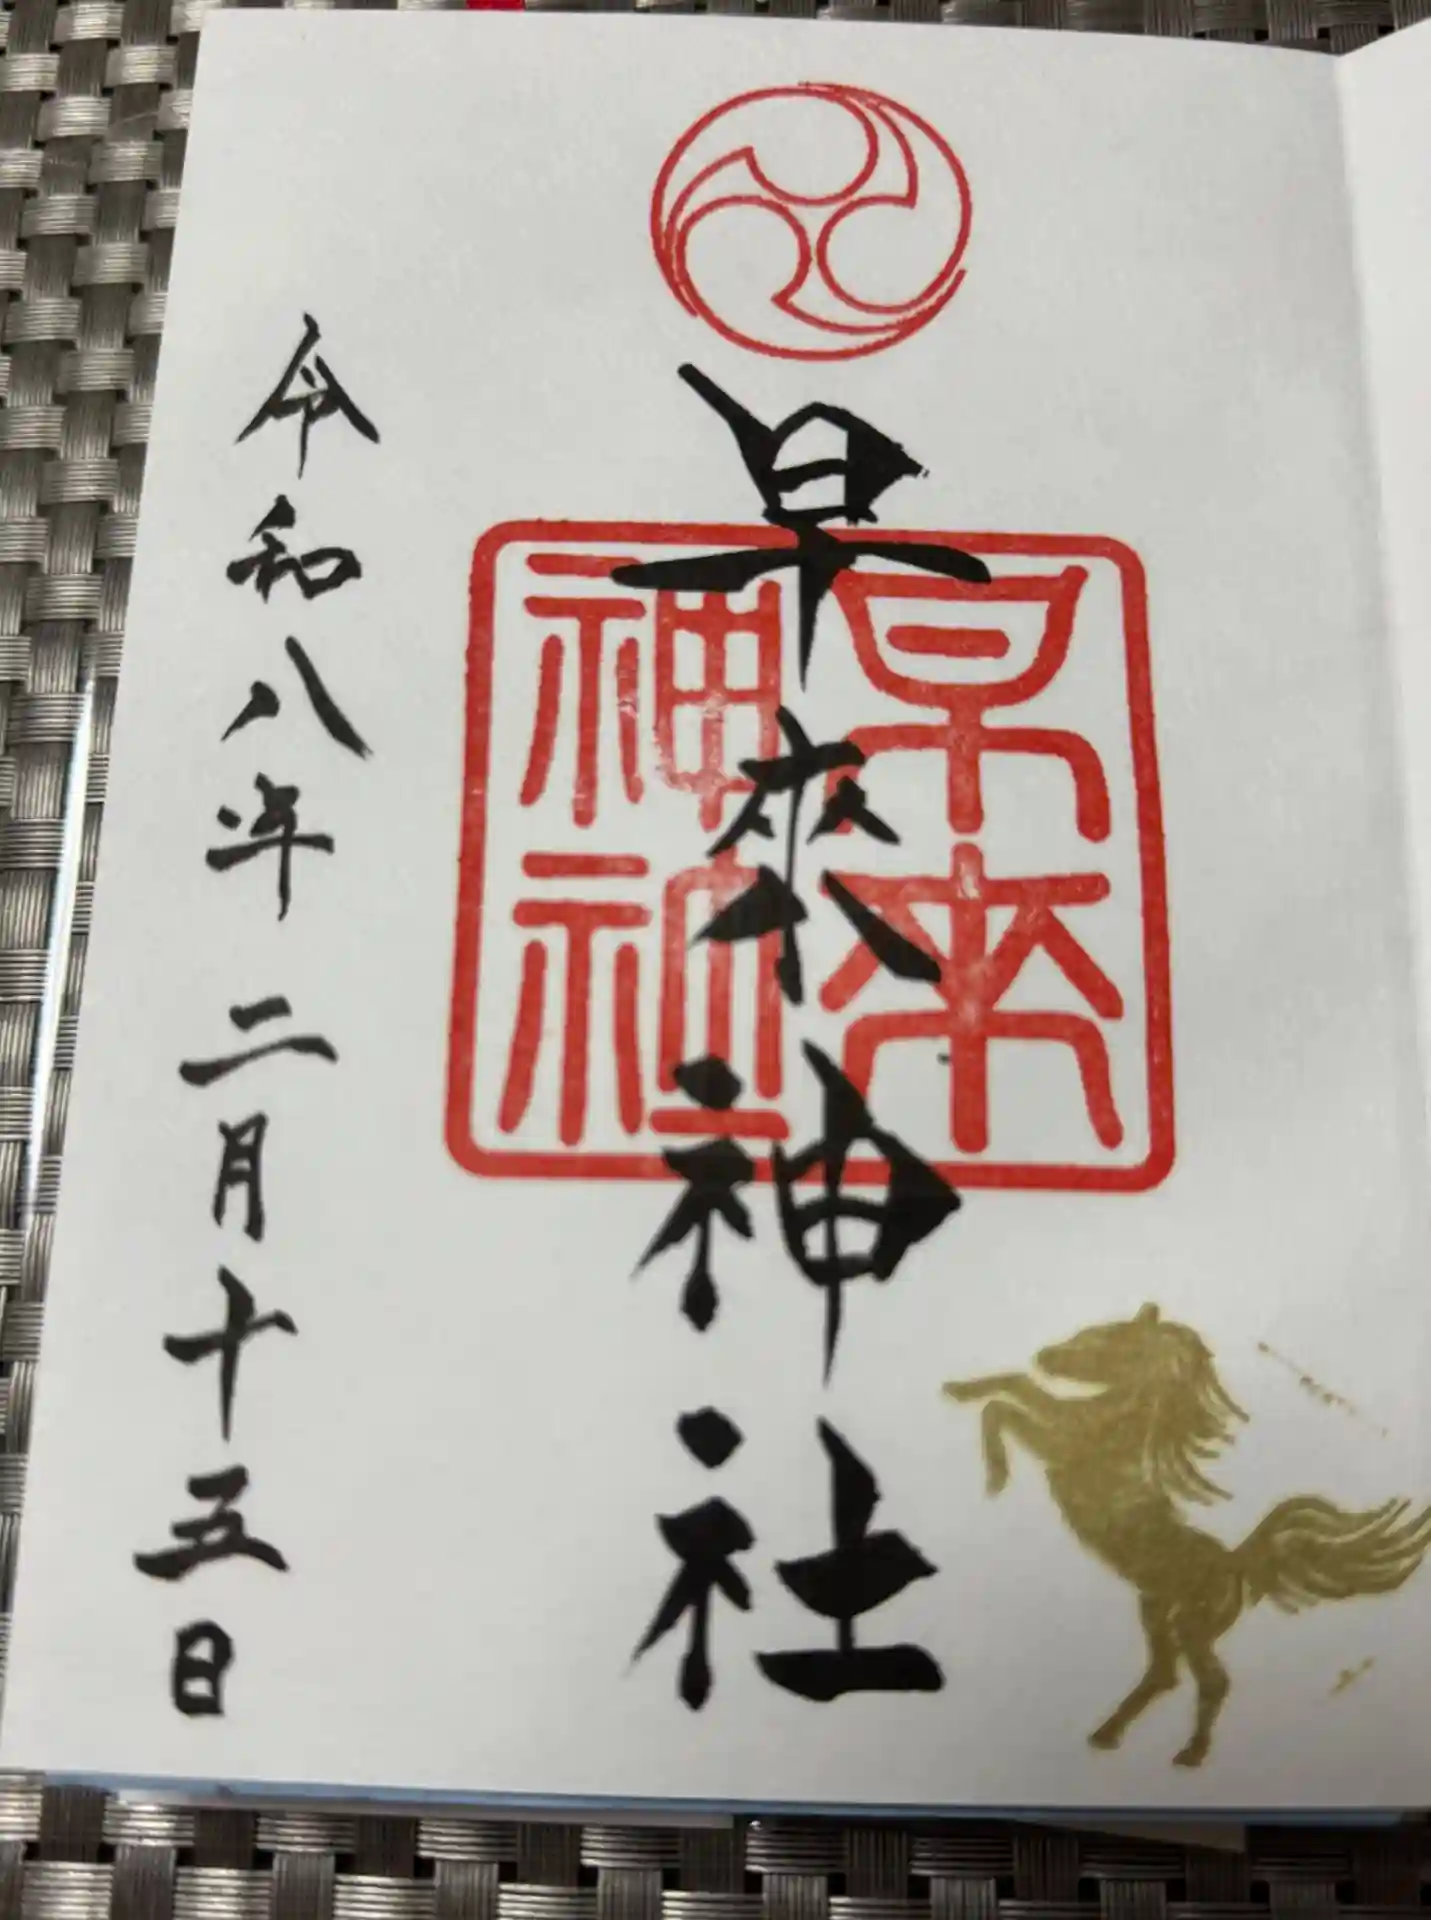 早来神社
早来
神社
令和八年二月十五日